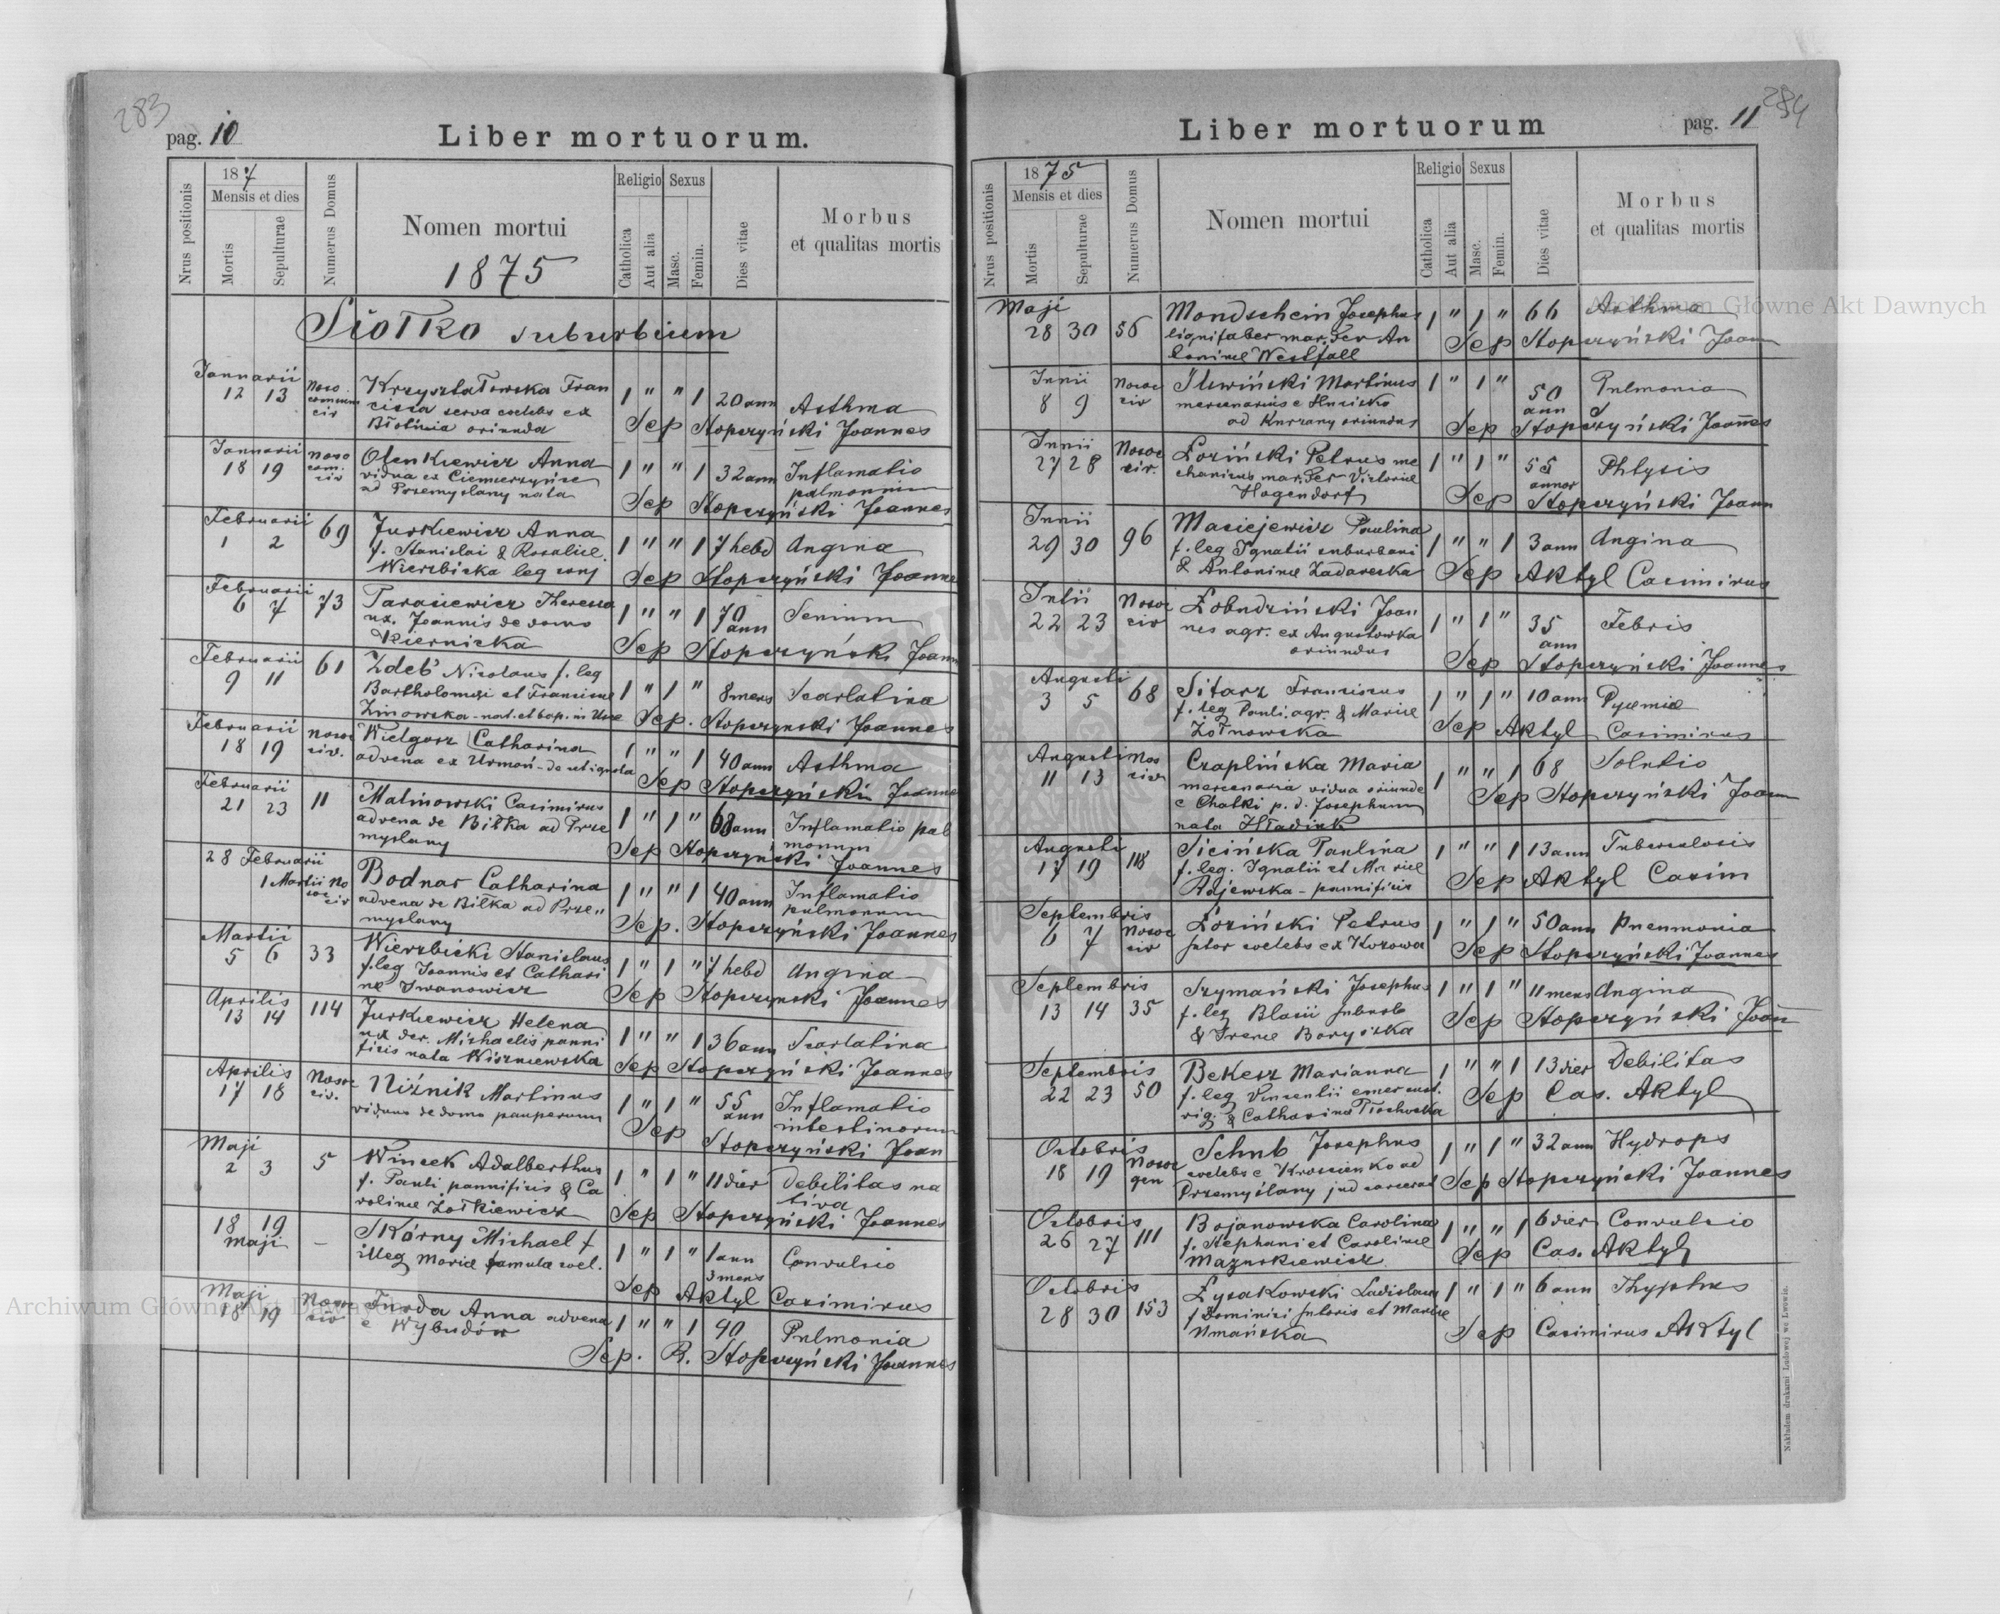 283
pag. 10
Liber mortuorum.
Nrus positionis
187
Mensis et dies
Mortis
Sepulturae
Numerus Domus
Nomen mortui
1875
Religio
Catholica
Aut alia
Sexus
Masc.
Femin.
Dies vitae
Morbus
et qualitas mortis
Siołko suburbium
Januarii
12 13 Noso Krzyształowska Fran 1 " " 1 20 ann Asthma
comium cisca serva coelebs ex
civ Błotnia oriunda Sep Stopczyński Joannes
Januarii
18 19 Noso Olenkiewicz Anna 1 " " 1 32 ann Inflamatio
com. vidua ex Ciemierzyńce pulmonum
civ ad Przemyslany nata Sep Stopczyński Joannes
Februarii
1 2 69 Jurkiewicz Anna 1 " " 1 7 hebd Angina
f. Stanislai & Rosaliae
Wierzbicka leg conj Sep Stopczyński Joanne
Februarii
6 7 73 Tarasiewicz Theressa 1 " " 1 70 ann Senium
ux. Joannis de domo
Kiernicka Sep Stopczyński Joann
Februarii
9 11 61 Zdeb Nicolaus f. leg 1 " 1 " 8 mens Scarlatina
Bartholomaei et Franciscae
Zinowska - nat. et bap. in Sep. Stopczynski Joannes
Februarii
18 19 Nosoc Wielgosz Catharina 1 " " 1 40 ann Asthma
civ. advena ex Urmoń - de ut ignota Sep Stopczyński Joanne
Februarii
21 23 11 Malinowski Casimirus 1 " 1 " 68 ann Inflamatio pul
advena de Biłka ad Prze monum
myslany Sep Stopczyński Joannes
28 Februarii
1 Martii No Bodnar Catharina 1 " " 1 40 ann Inflamatio
soc advena de Bilka ad Prze" pulmonum
civ myslany Sep. Stopczyński Joannes
Martii
5 6 33 Wierzbicki Stanislaus 1 " 1 " 7 hebd Angina
f. leg Joannis et Cathari
nae Iwanowicz Sep Stopczynski Joannes
Aprilis
13 14 114 Jurkiewicz Helena 1 " " 1 36 ann Scarlatina
ux der. Michaelis panni
ficis nata Wiszniewska Sep Stopczyński Joannes
Aprilis
17 18 Nosoc Niżnik Martinus 1 " 1 " 55 ann Inflamatio
civ. viduus de domo pauperum intestinorum
Sep Stopczyński Joan
Maji
2 3 5 Wincek Adalberthus 1 " 1 " 11 dier Debilitas na
f. Pauli pannificis & Ca tiva
rolinae Żołkiewicz Sep Stopczyński Joannes
18 19
Maji — Skórny Michael f 1 " 1 " 1 ann Convulsio
illeg Mariae famula coel. 3 mens
Sep Aktyl Casimirus
Maji
18 19 Nosoc Furda Anna advena 1 " " 1 40 Pulmonia
civ e Wybudów
Sep. R. Stopczyński Joannes
284
Liber mortuorum
pag. 11
Nrus positionis
1875
Mensis et dies
Mortis
Sepulturae
Numerus Domus
Nomen mortui
Religio
Catholica
Aut alia
Sexus
Masc.
Femin.
Dies vitae
Morbus
et qualitas mortis
Maji
28 30 56 Mondschein Josephus 1 " 1 " 66 Asthma
lignifaber mar. der An
toninae Westfall Sep Stopczyński Joann
Junii
8 9 Nosoc Ilewiński Martinus 1 " 1 " 50 ann Pulmonia
civ mercenarius e
ad Kurzany oriundus Sep Stopczyński Joannes
Junii
27 28 Nosoc Łoziński Petrus me 1 " 1 " 55 annor Phtysis
civ. chanicus mar. der Victoriae
Hagendorf Sep Stopczyński Joann
Junii
29 30 96 Maciejewicz Paulina 1 " " 1 3 ann Angina
f. leg Ignatii suburbani
& Antoninae Zadarecka Sep Aktyl Casimirus
Julii
22 23 Nosoc Łobudziński Joan 1 " 1 " 35 ann Febris
civ nes agr. ex Augustowka
oriundus Sep Stopczyński Joannes
Augusti
3 5 68 Sitarz Franciscus 1 " 1 " 10 ann Pyemia
f. leg Pauli. agr. & Mariae
Żołnowska Sep Aktyl Casimirus
Augusti
11 13 Nos Czaplińska Maria 1 " " 1 68 Solutio
civ mercenaria vidua oriunda
e Chatki p. d. Josephum
nata Hładiuk Sep Stopczyński Joann
Augusti
17 19 118 Sicińska Paulina 1 " " 1 13 ann Tuberculosis
f. leg. Ignatii et Mariae
Adjewska - pannificis Sep Aktyl Casim
Septembris
6 7 Nosoc Łoziński Petrus 1 " 1 " 50 ann Pneumonia
civ sutor coelebs ex Kozowa Sep Stopczyński Joannes
Septembris
13 14 35 Szymański Josephus 1 " 1 " 11 mens Angina
f. leg Blasii
& Irenae Boryszka Sep Stopczyński Joan
Septembris
22 23 50 Bekesz Marianna 1 " " 1 13 dier Debilitas
f. leg Vincentii
vig. & Catharinae Sep Cas. Aktyl
Octobris
18 19 Nosoc Schub Josephus 1 " 1 " 32 ann Hydrops
gen coelebs e Krosienko ad
Przemyślany jud carcerat Sep Stopczyński Joannes
Octobris
26 27 111 Bojanowska Carolina 1 " " 1 6 dier Convulsio
f. Stephani et Carolinae
Mazurkiewicz Sep Cas. Aktyl
Octobris
28 30 153 Łysakowski Ladislaus 1 " 1 " 6 ann Thyphus
f Dominici sutoris et Mariae
Umańska Sep Casimirus Aktyl
Nakładem drukarni Ludowej we Lwowie.
Archiwum Główne Akt Dawnych
Archiwum Główne Akt Dawnych